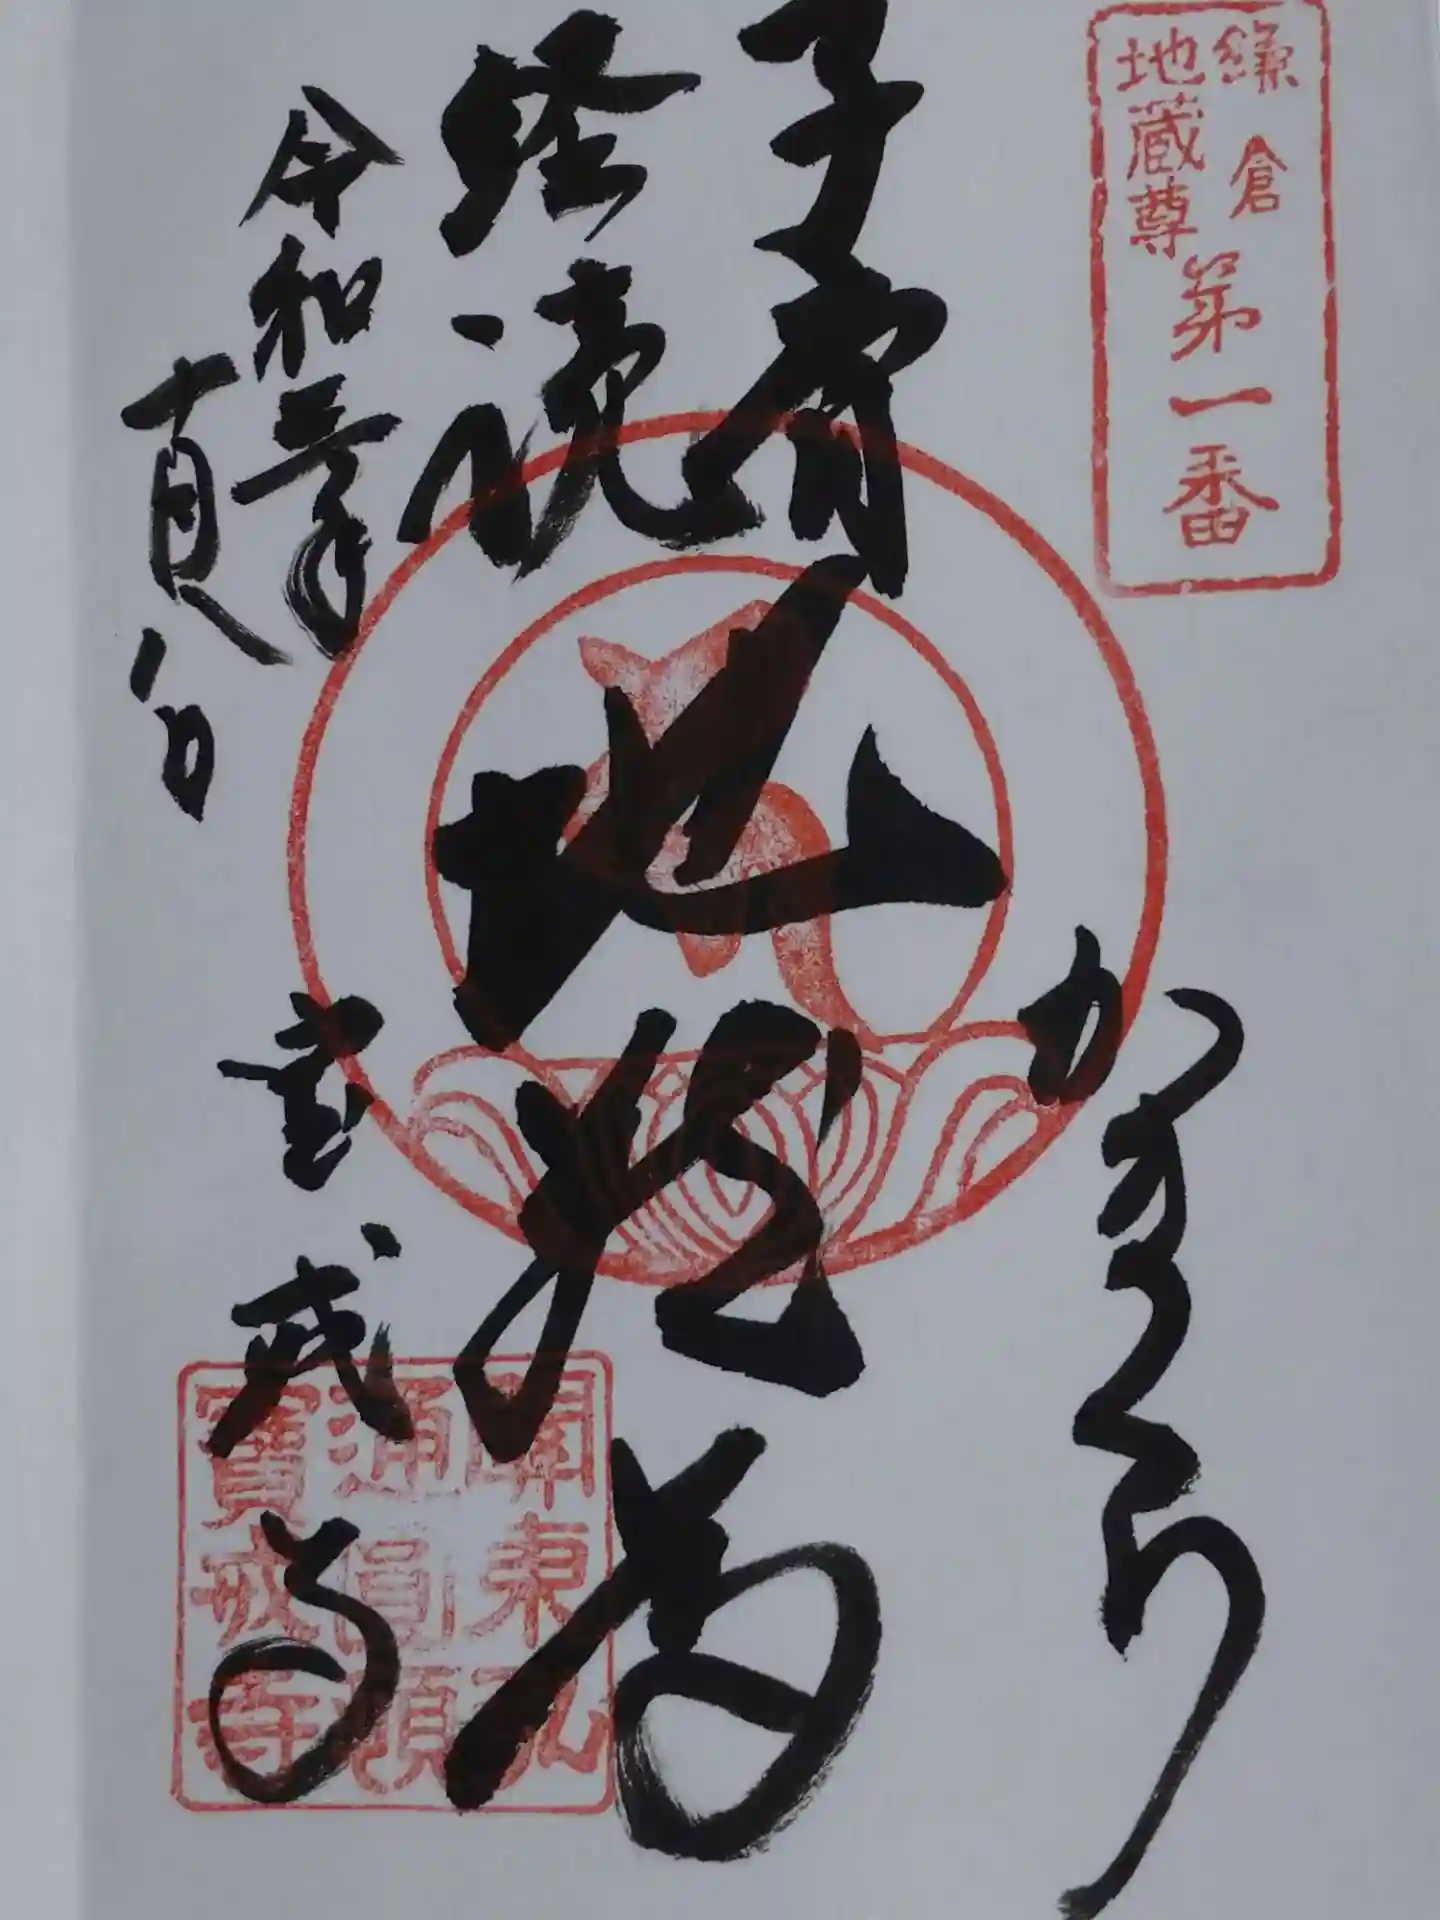 鎌倉
地蔵尊
第一番
かまくら
子育
経読
地蔵尊
令和三年
十一月八日
宝戒寺
關東弘
通圓頓
寶戒寺